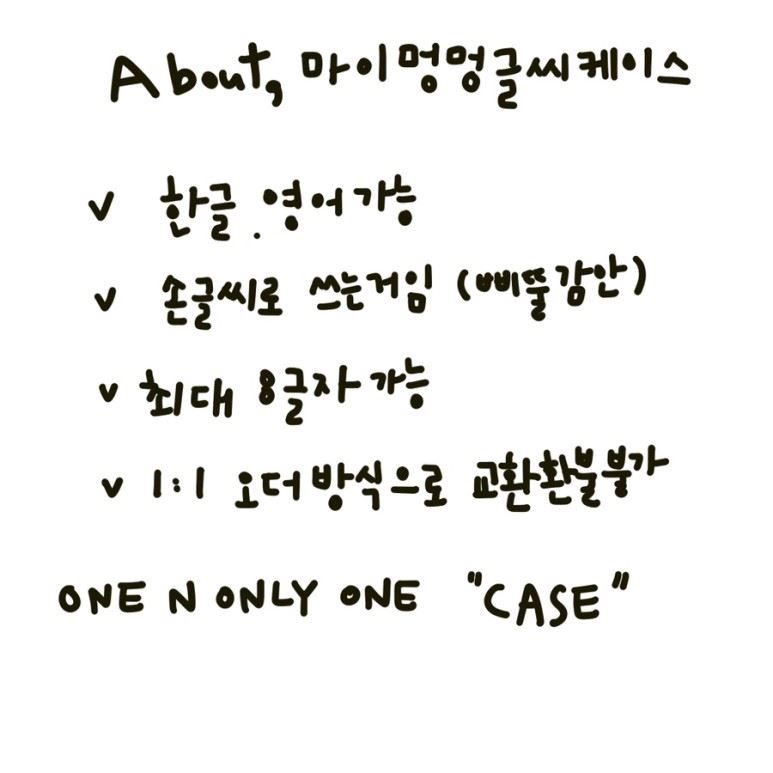 About, 마이멍멍글씨케이스
v 한글.영어가능
v 손글씨로 쓰는거임 (삐뚤감안)
v 최대 8글자가능
v 1:1 오더방식으로 교환환불불가
ONE N ONLY ONE "CASE"